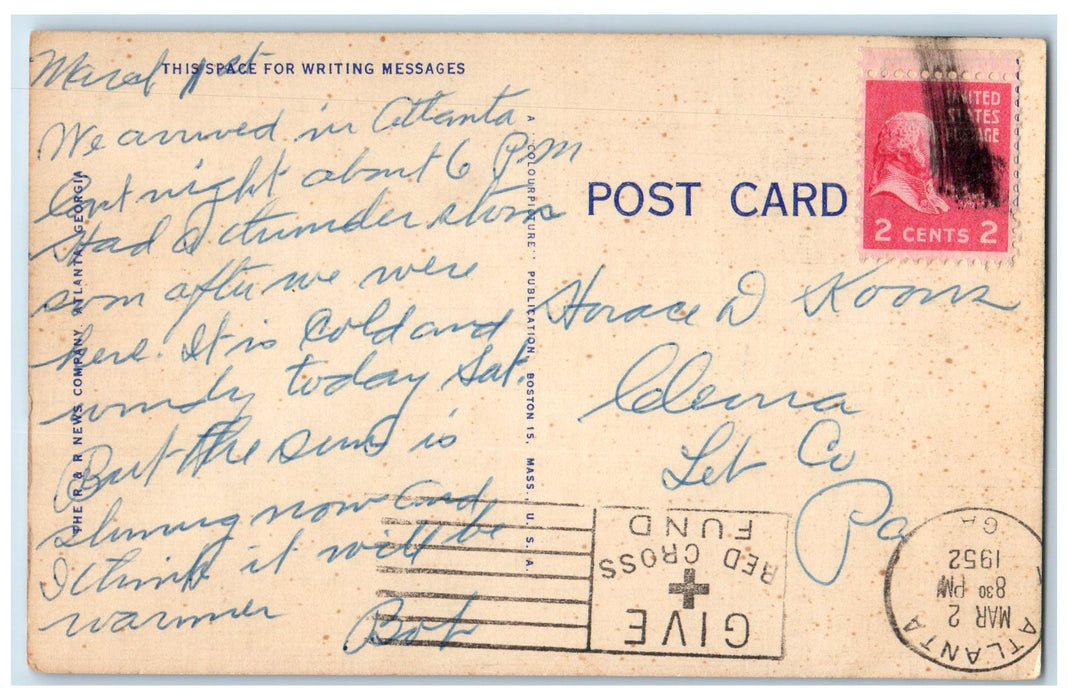 THIS SPACE FOR WRITING MESSAGES
March 1st
We arrived in Atlanta
last night about 6 P.M
Had a thunder storm
soon after we were
here. It is Cold and
windy today Sat.
But the sun is
shining now and
I think it will be
warmer
Bob
THE R & R NEWS COMPANY, ATLANTA, GEORGIA
A "COLOURPICTURE" PUBLICATION BOSTON 15, MASS., U.S.A.
POST CARD
UNITED
STATES
POSTAGE
2 CENTS 2
Horace D Koons
Cleona
Leb Co
Pa
GIVE
RED CROSS
FUND
ATLANTA
MAR 2
8 30 PM
1952
GA